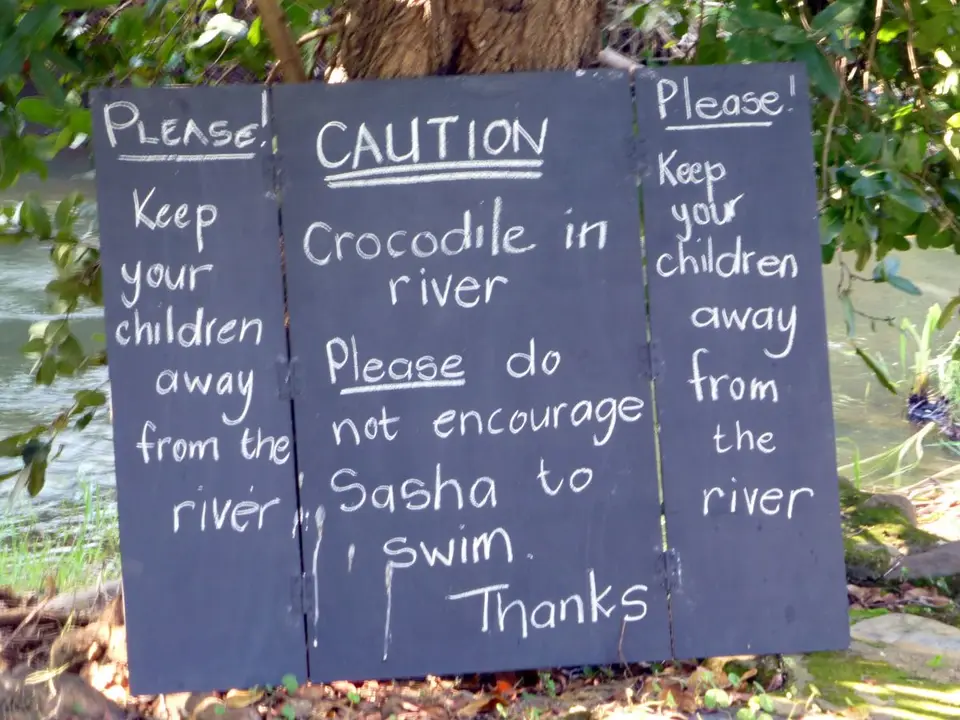 PLEASE!
Keep
your
children
away
from the
river
CAUTION
Crocodile in
river
Please do
not encourage
Sasha to
swim.
Thanks
Please!
Keep
your
children
away
from
the
river